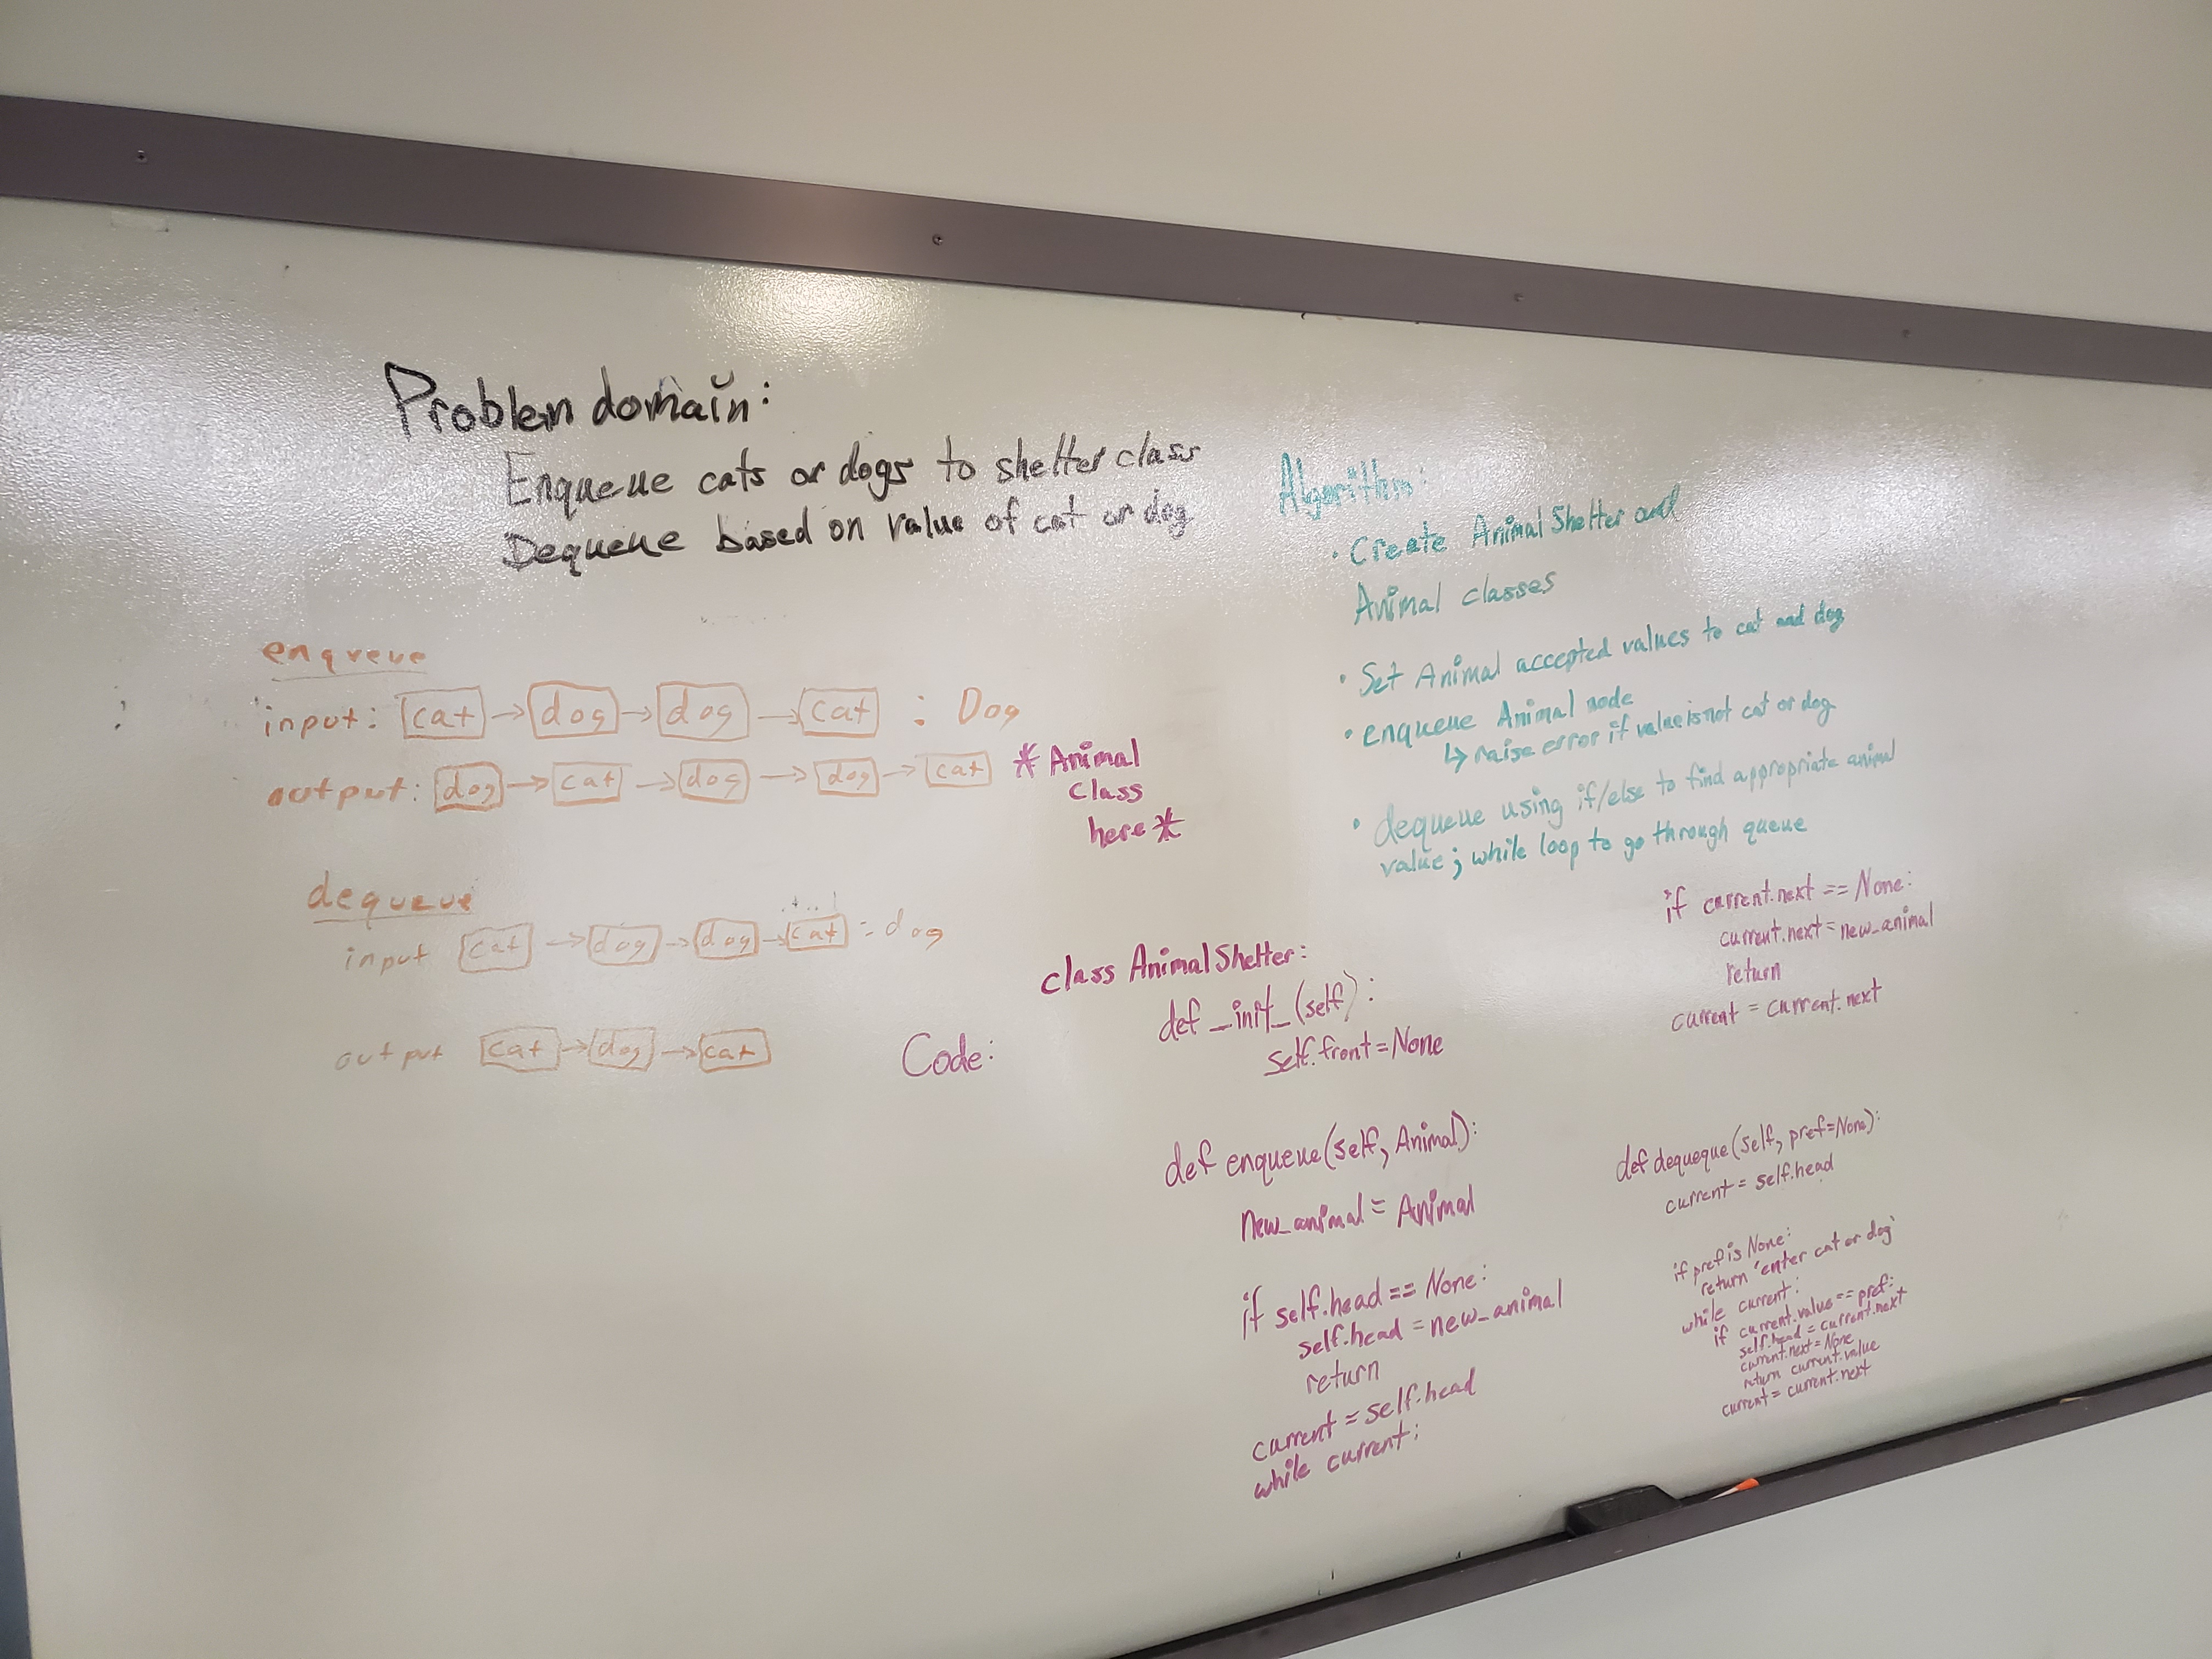 Problem domain:
Enqueue cats or dogs to shelter class
Dequeue based on value of cat or dog
enqueue
input: cat → dog → dog → cat : Dog
output: dog → cat → dog → dog → cat
dequeue
input cat → dog → dog → cat = dog
output cat → dog → cat
Algorithm:
· Create AnimalShelter and
Animal classes
· Set Animal accepted values to cat and dog
· enqueue Animal node
↳ raise error if value is not cat or dog
· dequeue using if/else to find appropriate animal
value; while loop to go through queue
Code:
*Animal
class
here*
class AnimalShelter:
def _init_(self):
self.front=None
def enqueue(self, Animal):
new_animal = Animal
if self.head == None:
self.head = new_animal
return
current = self.head
while current:
if current.next == None:
current.next = new_animal
return
current = current.next
def dequeque(self, pref=None):
current = self.head
if pref is None:
return 'enter cat or dog'
while current:
if current.value == pref:
self.head = current.next
current.next = None
return current.value
current = current.next